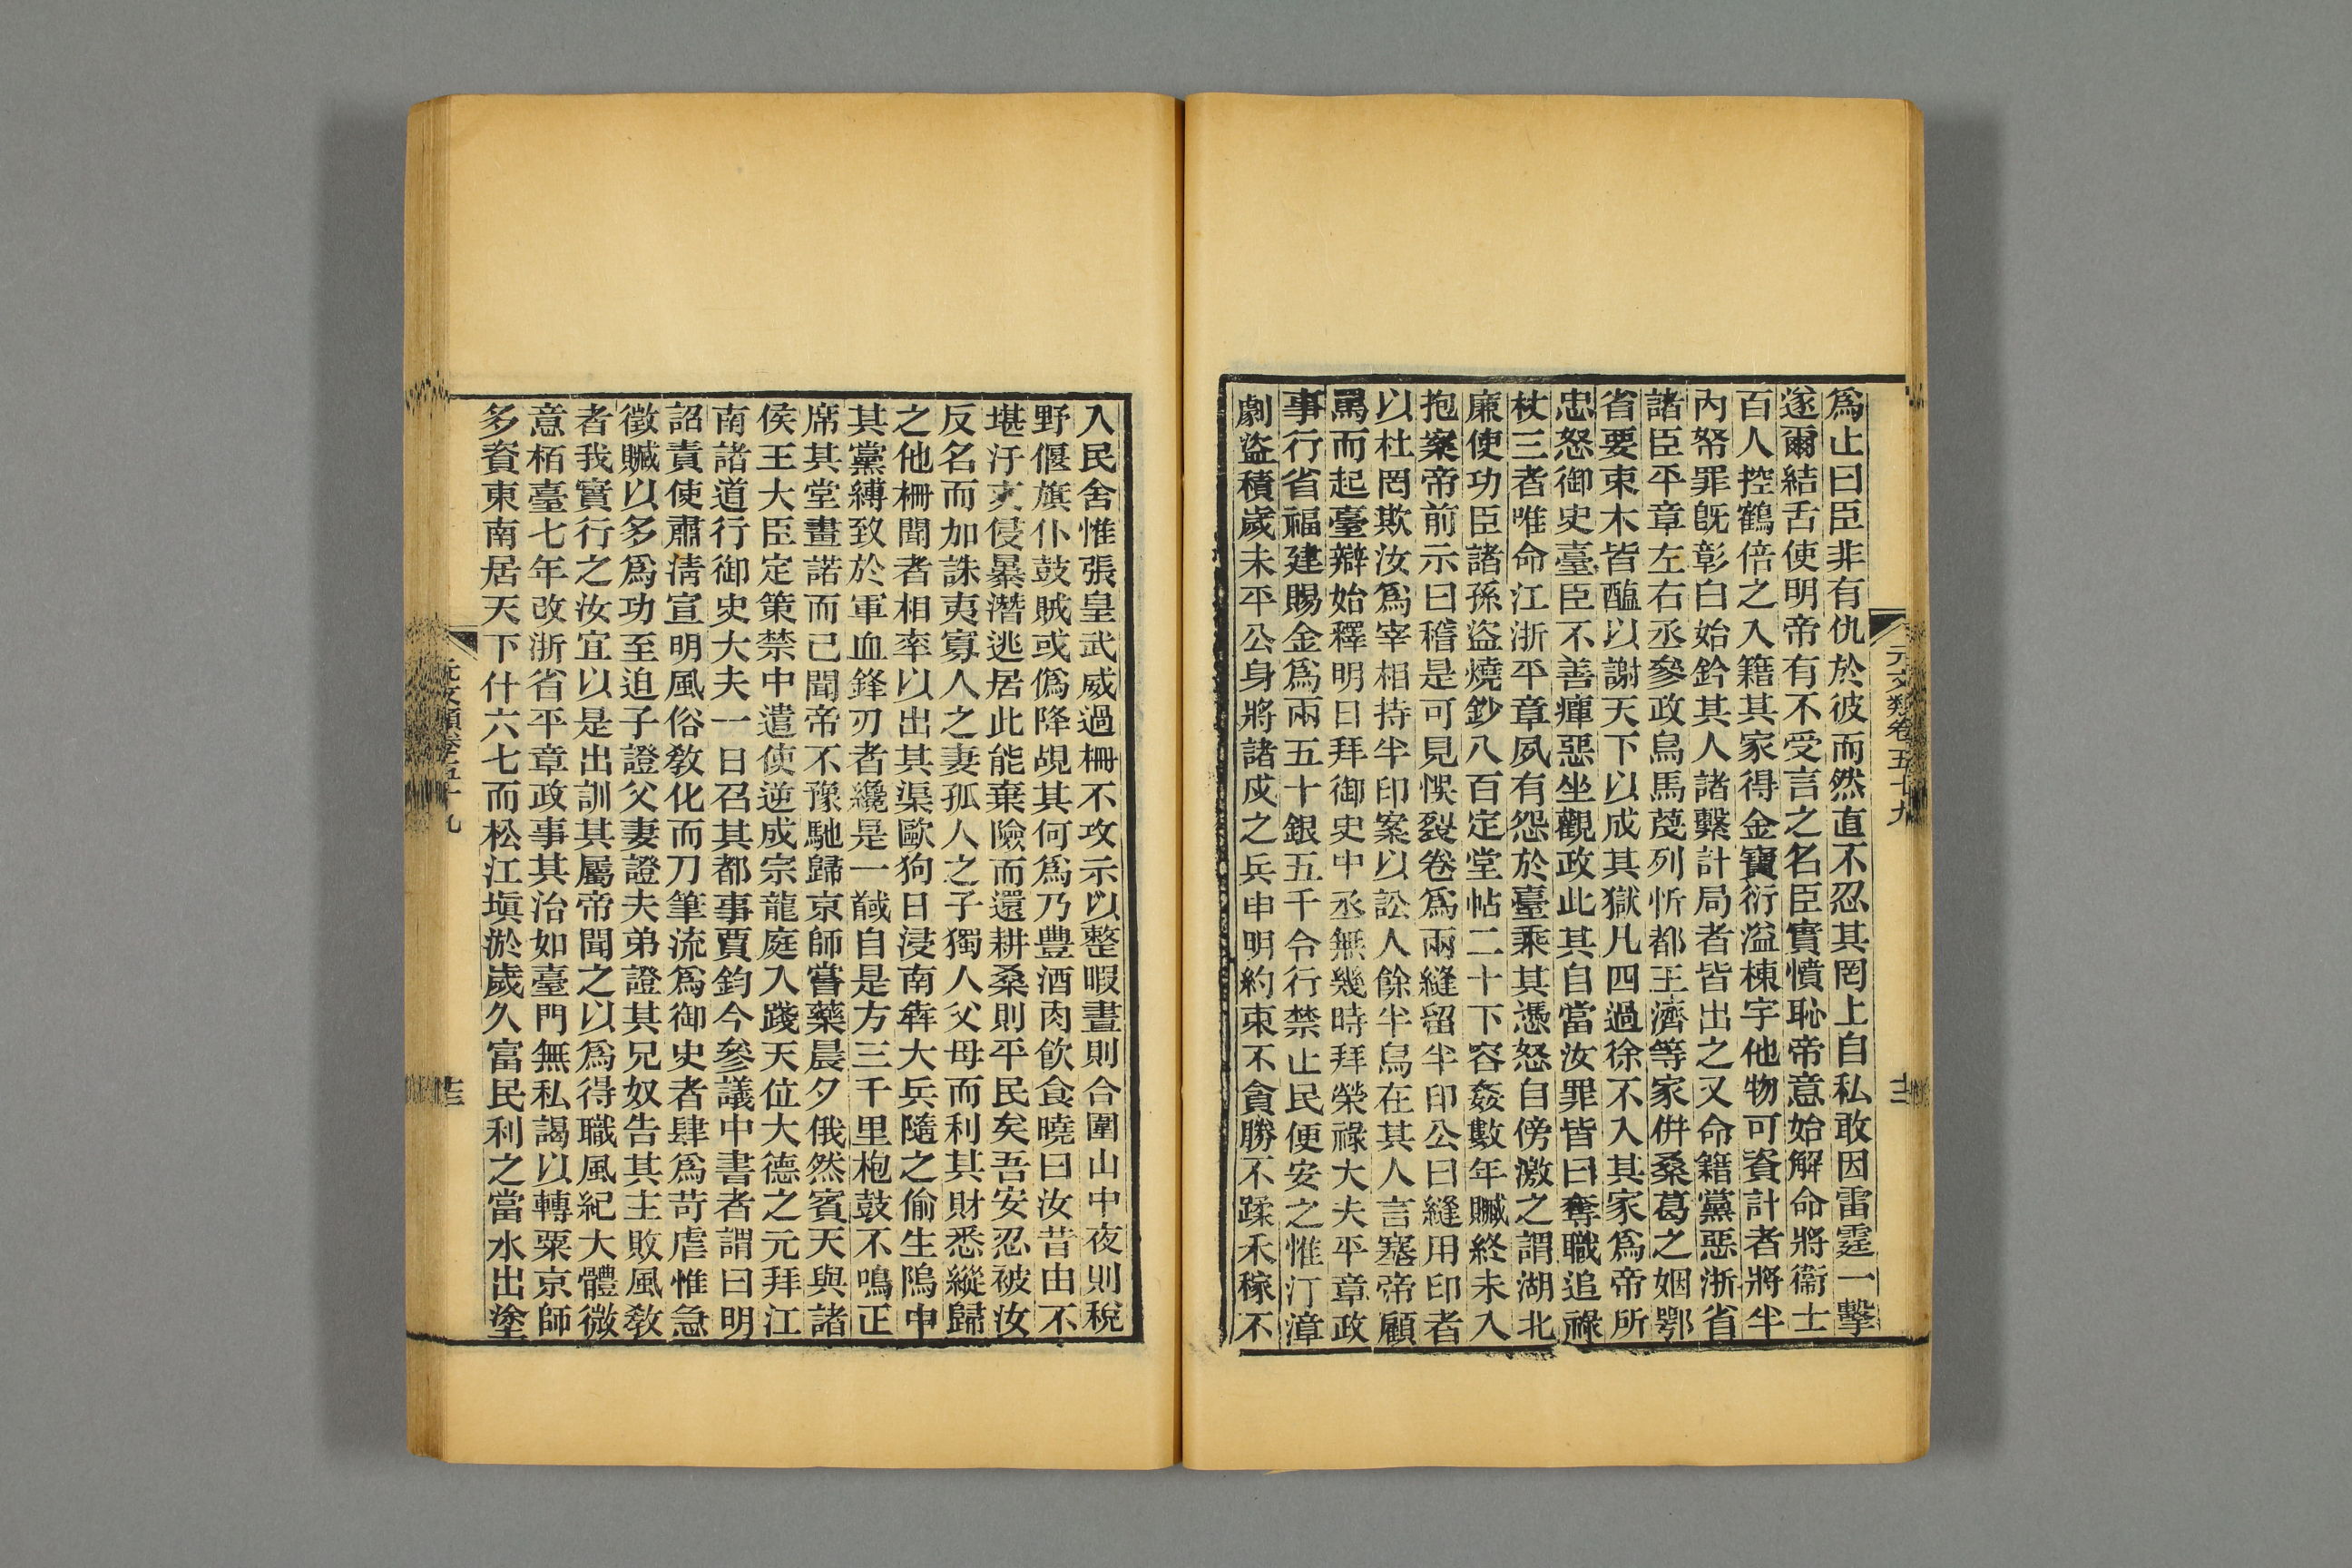 元文類卷五十九
十二
爲止曰臣非有仇於彼而然直不忍其罔上自私敢因雷霆一擊
遂爾結舌使明帝有不受言之名臣實憤恥帝意始解命將衞士
百人控鶴倍之入籍其家得金寶衍溢棟宇他物可資計者將半
內帑罪旣彰白始鈐其人諸繫計局者皆出之又命籍黨惡浙省
諸臣平章左右丞參政烏馬蔑列忻都王濟等家併桑葛之姻鄂
省要束木皆醢以謝天下以成其獄凡四過徐不入其家爲帝所
忠怒御史臺臣不善癉惡坐觀政此其自當汝罪皆曰奪職追祿
杖三者唯命江浙平章夙有怨於臺乘其憑怒自傍激之謂湖北
廉使功臣諸孫盜燒鈔八百定堂帖二十下容姦數年贓終未入
抱案帝前示曰稽是可見悞裂卷爲兩縫留半印公曰縫用印者
以杜罔欺汝爲宰相持半印案以訟人餘半烏在其人言塞帝顧
罵而起臺辯始釋明日拜御史中丞無幾時拜榮祿大夫平章政
事行省福建賜金爲兩五十銀五千令行禁止民便安之惟汀漳
劇盜積歲未平公身將諸戍之兵申明約束不貪勝不蹂禾稼不
入民舍惟張皇武威過柵不攻示以整暇晝則合圍山中夜則稅
野偃旗仆鼓賊或僞降覘其何爲乃豐酒肉飮食曉曰汝昔由不
堪汙吏侵暴潛逃居此能棄險而還耕桑則平民矣吾安忍被汝
反名而加誅夷寡人之妻孤人之子獨人父母而利其財悉縱歸
之他柵聞者相率以出其渠歐狗日浸南犇大兵隨之偷生隝中
其黨縛致於軍血鋒刃者纔是一馘自是方三千里枹鼓不鳴正
席其堂畫諾而已聞帝不豫馳歸京師嘗藥晨夕俄然賓天與諸
侯王大臣定策禁中遣使逆成宗龍庭入踐天位大德之元拜江
南諸道行御史大夫一日召其都事賈鈞今參議中書者謂曰明
詔責使肅淸宣明風俗敎化而刀筆流爲御史者肆爲苛虐惟急
徵贓以多爲功至迫子證父妻證夫弟證其兄奴告其主敗風敎
者我實行之汝宜以是出訓其屬帝聞之以爲得職風紀大體微
意栢臺七年改浙省平章政事其治如臺門無私謁以轉粟京師
多資東南居天下什六七而松江塡淤歲久富民利之當水出塗
元文類卷五十九
十三